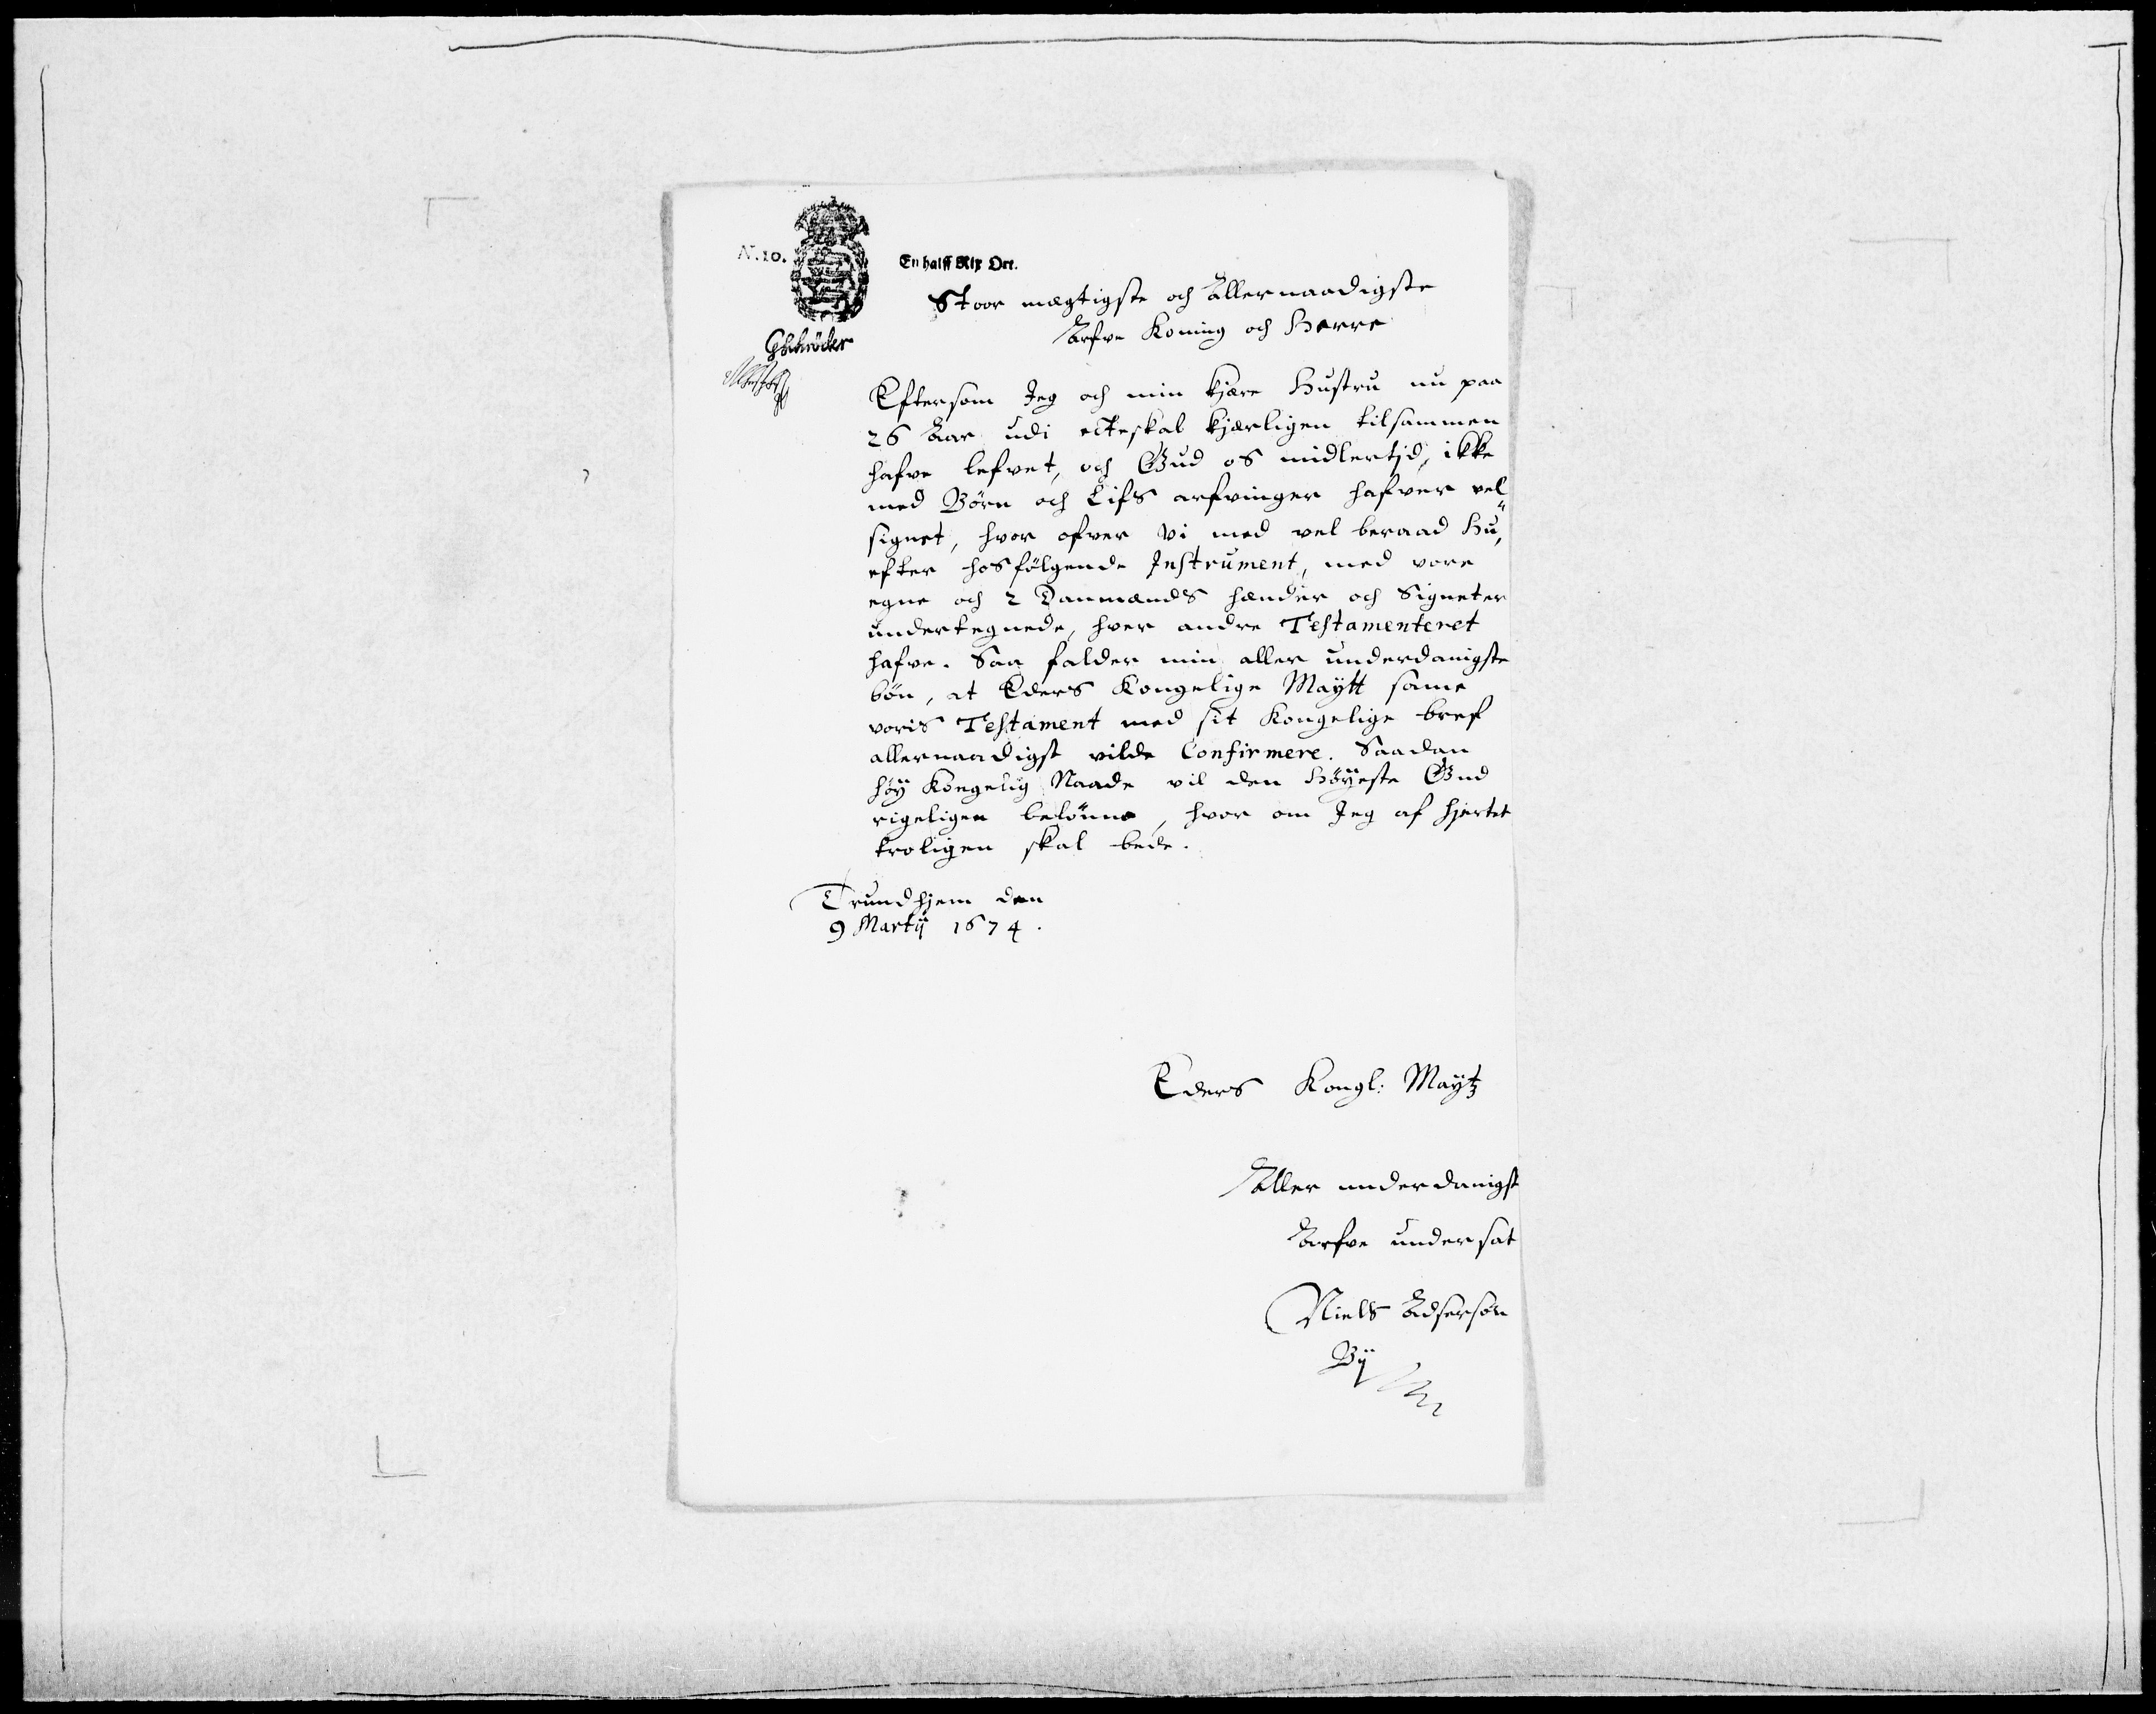 N. 10.
En halff Rix Ort.
GSchröder
Stoor mægtigste och Allernaadigste
Arfve Koning och Herre
Eftersom Jeg och min kjære Hustru nu paa
26 Aar udi ecteskab kjærligen tilsammen
hafve lefvet, och Gud os midlertjd, ikke
med Börn och Lifs arfvinger hafver vel-
signet, hvor ofver Vi med vel beraad Hu,
efter hosfölgende Instrument, med vore
egne och 2 Danmænds hænder och Signeter
undertegnede, hver andre Testamenteret
hafve. Saa falder min aller underdanigste
bön, at Eders Kongelige Maÿtt same
voris Testament med sit Kongelige bref
allernaadigst vilde Confirmere. Saadan
höÿ Kongelig Naade vil den Höÿeste Gud
rigeligen belönne, hvor om Jeg af hjertet
troligen skal bede.
Trundhjem den
9 Martÿ 1674.
Eders Kongl: Maÿtz
Aller underdanigst
Arfve undersat
Niels Adserson
Bÿ